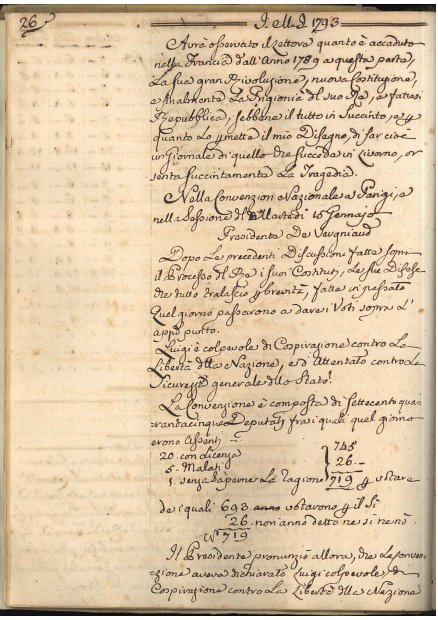 26 I. M. I. 1793
Avrà osservato il Lettore quanto è accaduto
nella Francia dall'Anno 1789 a questa parte,
La sua gran Rivoluzione, nuova Costituzione,
e finalmente La Prigionia del suo Rè, e fattasi
Repubblica, sebbene il tutto in Succinto, e p
quanto Lo pmette il mio Disegno, di far cioè
un Giornale di quello che succede in Livorno, or
senta succintamente La Tragedia.
Nella Convenzion Nazionale a Parigi, e
nella Sessione del Martedì 15 Gennajo
Presidente De Vergniaud
Dopo Le precedenti Discussioni fatte sopra
il Processo del Rè i suoi Costituti, Le sue Difese
che tutto tralascio p brevità, fatte in passato
Quel giorno passarono a dare i Voti sopra L'
appo punto.
Luigi è colpevole di Cospirazione contro La
Libertà della Nazione, e d'Attentato contro La
Sicurezza generale dello Stato?
La Convenzione è composta di Settecento qua
rantacinque Deputati frai quali quel giorno
erono Assenti 745
20. con Licenza 26. —
5. Malati 719 p votare
1. senza saperne La ragione
de i quali 693 anno votarono p il Sì
26. non anno detto ne sì ne nò
719
Il Presidente pronunziò allora, che La Conven-
zione aveva dichiarato Luigi colpevole, di
Cospirazione contro La Libertà della Nazione